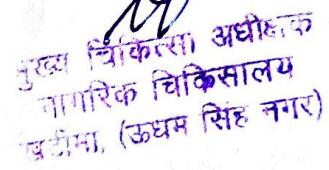 मुख्य चिकित्सा अधीक्षक
नागरिक चिकित्सालय
खटीमा, (ऊधम सिंह नगर)